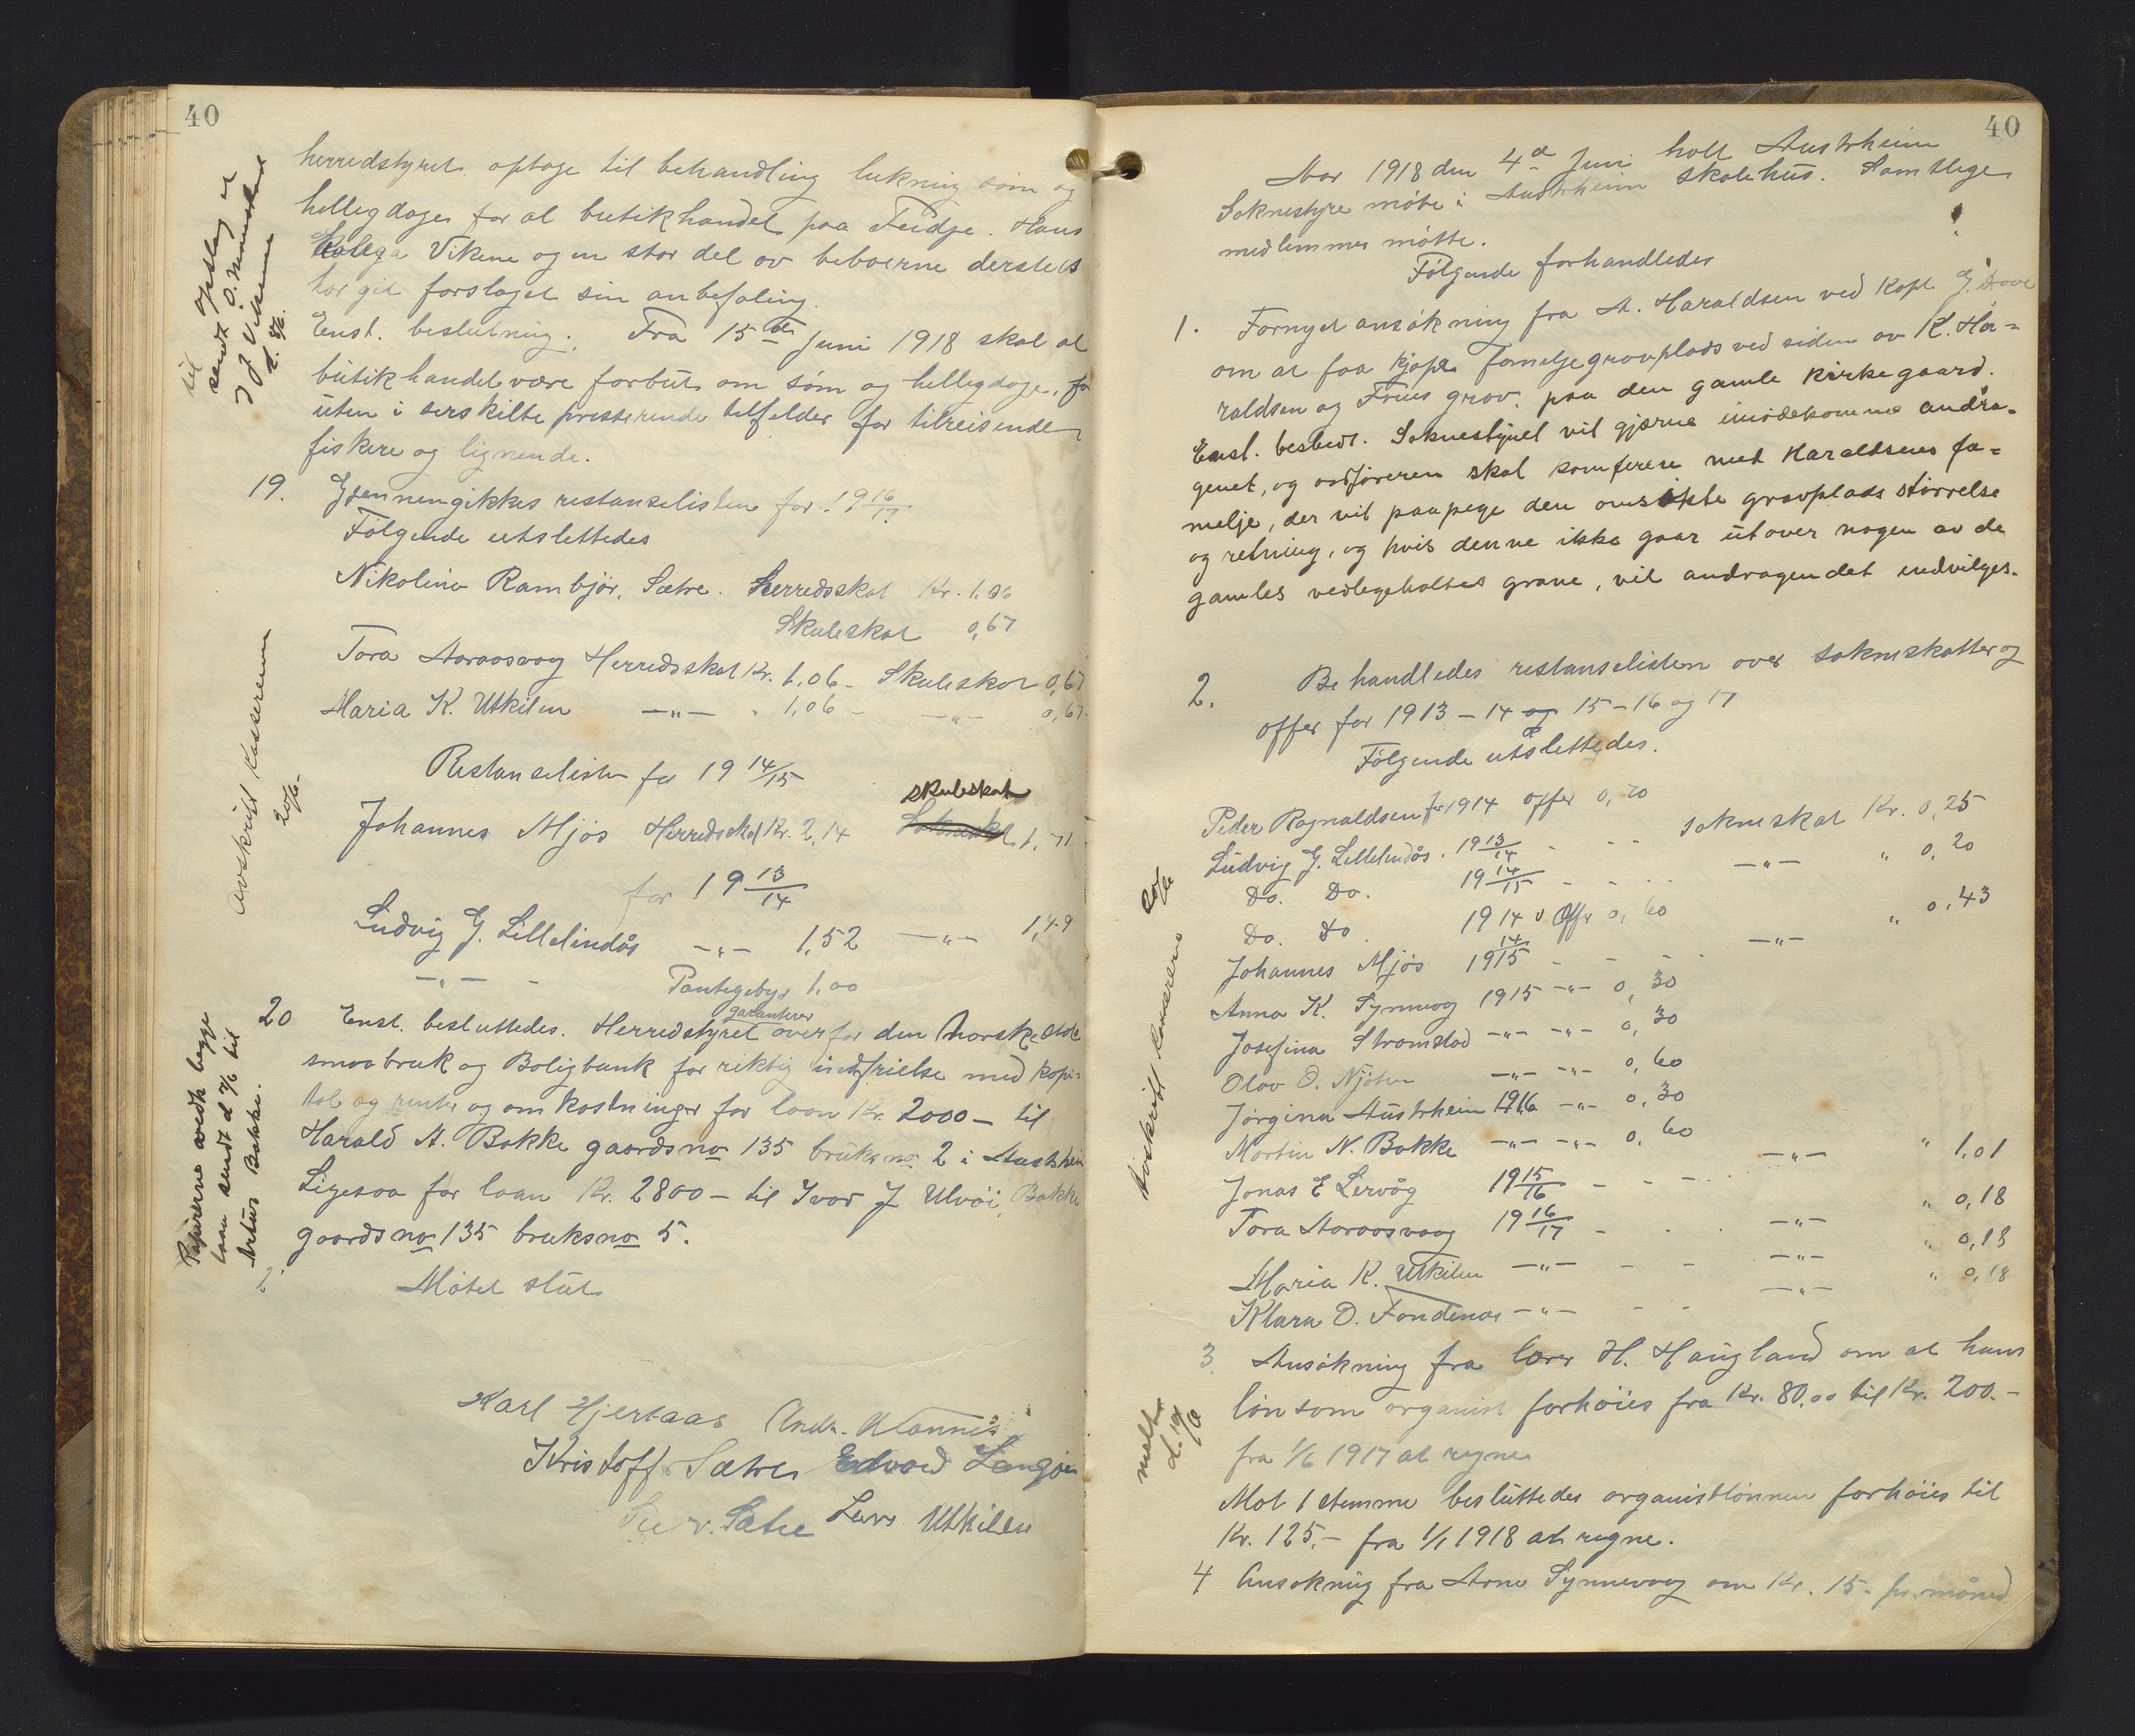 40
herredstyret optage til behandling lukning søn og
helligdager for al butikhandel paa Fedje. Hans
Kollega Vikene og en stor del av beboerne dersteds
har git forslaget sin anbefaling.
Enst. beslutning. Fra 15de Juni 1918 skal al
butikhandel være forbut om søn og helligdage, for
uten i serskilte presserende tilfelder for tilreisende
fiskere og lignende.
19. Gjennemgikkes restanselisten for 1916/17.
Følgende utslettedes
Nikolina Rambjør, Sætre. Herredsskat Kr. 1,06
Skuleskat 0,67
Tora Aaraasvaag Herredsskat Kr. 1,06 - Skuleskat 0,67
Maria K. Utkilen -"- " 1,06 - -"- 0,67.
Restanselisten for 1914/15
skuleskat
Johannes Mjøs Herredsskat Kr. 2,14 1,71
for 1913/14
Ludvig G. Lillelindås -"- 1,52 -"- 1,49
-"- - Pantegebyr 1,00
garanterer
20 Enst. besluttedes. Herredstyret overfor den norske stats
smaabruk og Boligbank for riktig indfrielse med kapi-
tal og renter og omkostninger for laan Kr. 2000 - til
Harald A. Bakke gaardsno 135 bruksno 2 i Austrheim
Ligesaa for laan Kr. 2800 - til Ivar J Ulvøi, Bakke
gaardsno 135 bruksno 5.
Møtet slut
Karl Hjertaas Andr. Mannes
Kristoffer Sætre Edvard
Sætre Lars Utkilen
til opslag er
sendt O.
I J Vikene
d. 8/6.
Avskrift kassereren
20/6-
Papirerne vedk begge
laan sendt d 7/6 til
Artur Bakke.
40
Aar 1918 den 4de Juni holt Austrheim
Soknestyre møte i Austrheim skolehus. Samtlige
medlemmer møtte.
Følgende forhandledes
1. Fornyet ansøkning fra A. Haraldsen ved Kapt. G.
om at faa kjøpe familjegravplads ved siden av K. Ha-
raldsen og Frues grav. paa den gamle kirkegaard.
Enst. beslut. Soknestyret vil gjærne imødekomme andra-
genet, og ordføreren skal komferere med Haraldsens fa-
melje, der vil paapege den omsøkte gravplads størrelse
og retning, og hvis denne ikke gaar utover nogen av de
gamles vedlegeholtes grave, vil andragendet indvilges.
2. Behandledes restanselisten over soknskatter og
offer for 1913 - 14 og 15 - 16 og 17
Følgende utslettedes.
Peder Ragnaldsen for 1914 offer 0,70
Ludvig G. Lillelindås. 1913/14 - - - soknskat Kr. 0,25
Do. Do. 1914/15 - - - -"- " 0,20
Do. Do. 1914 Offer 0,60
Johannes Mjøs 1914/15 - - - -"- " 0,43
Anna K. Synnevaag 1915 -"- 0,30
Josefina Strømstad -"- -"- 0,30
Olav O. Njøten -"- -"- 0,60
Jørgina Austrheim 1916 -"- 0,30
Martin N. Bakke -"- -"- 0,60
Jonas E Lervåg 1915/16 - - - -"- " 1,01
Tora Aaraasvaag 1916/17 - - -"- " 0,18
Maria K. Utkilen -"- - - -"- " 0,18
Klara O. Fondenes -"- - - -"- " 0,18
3 Ansøkning fra Lars H. Haugland om at hans
løn som organist forhøies fra Kr. 80,00 til Kr. 200.-
fra 1/6 1917 at regne
Mot 1 stemme besluttedes organistlønnen forhøies til
Kr. 125.- fra 1/1 1918 at regne.
4 Ansøkning fra Arne Synnevaag om Kr. 15.- pr. måned
Avskrift kassereren 20/6
melt
d. 19/6